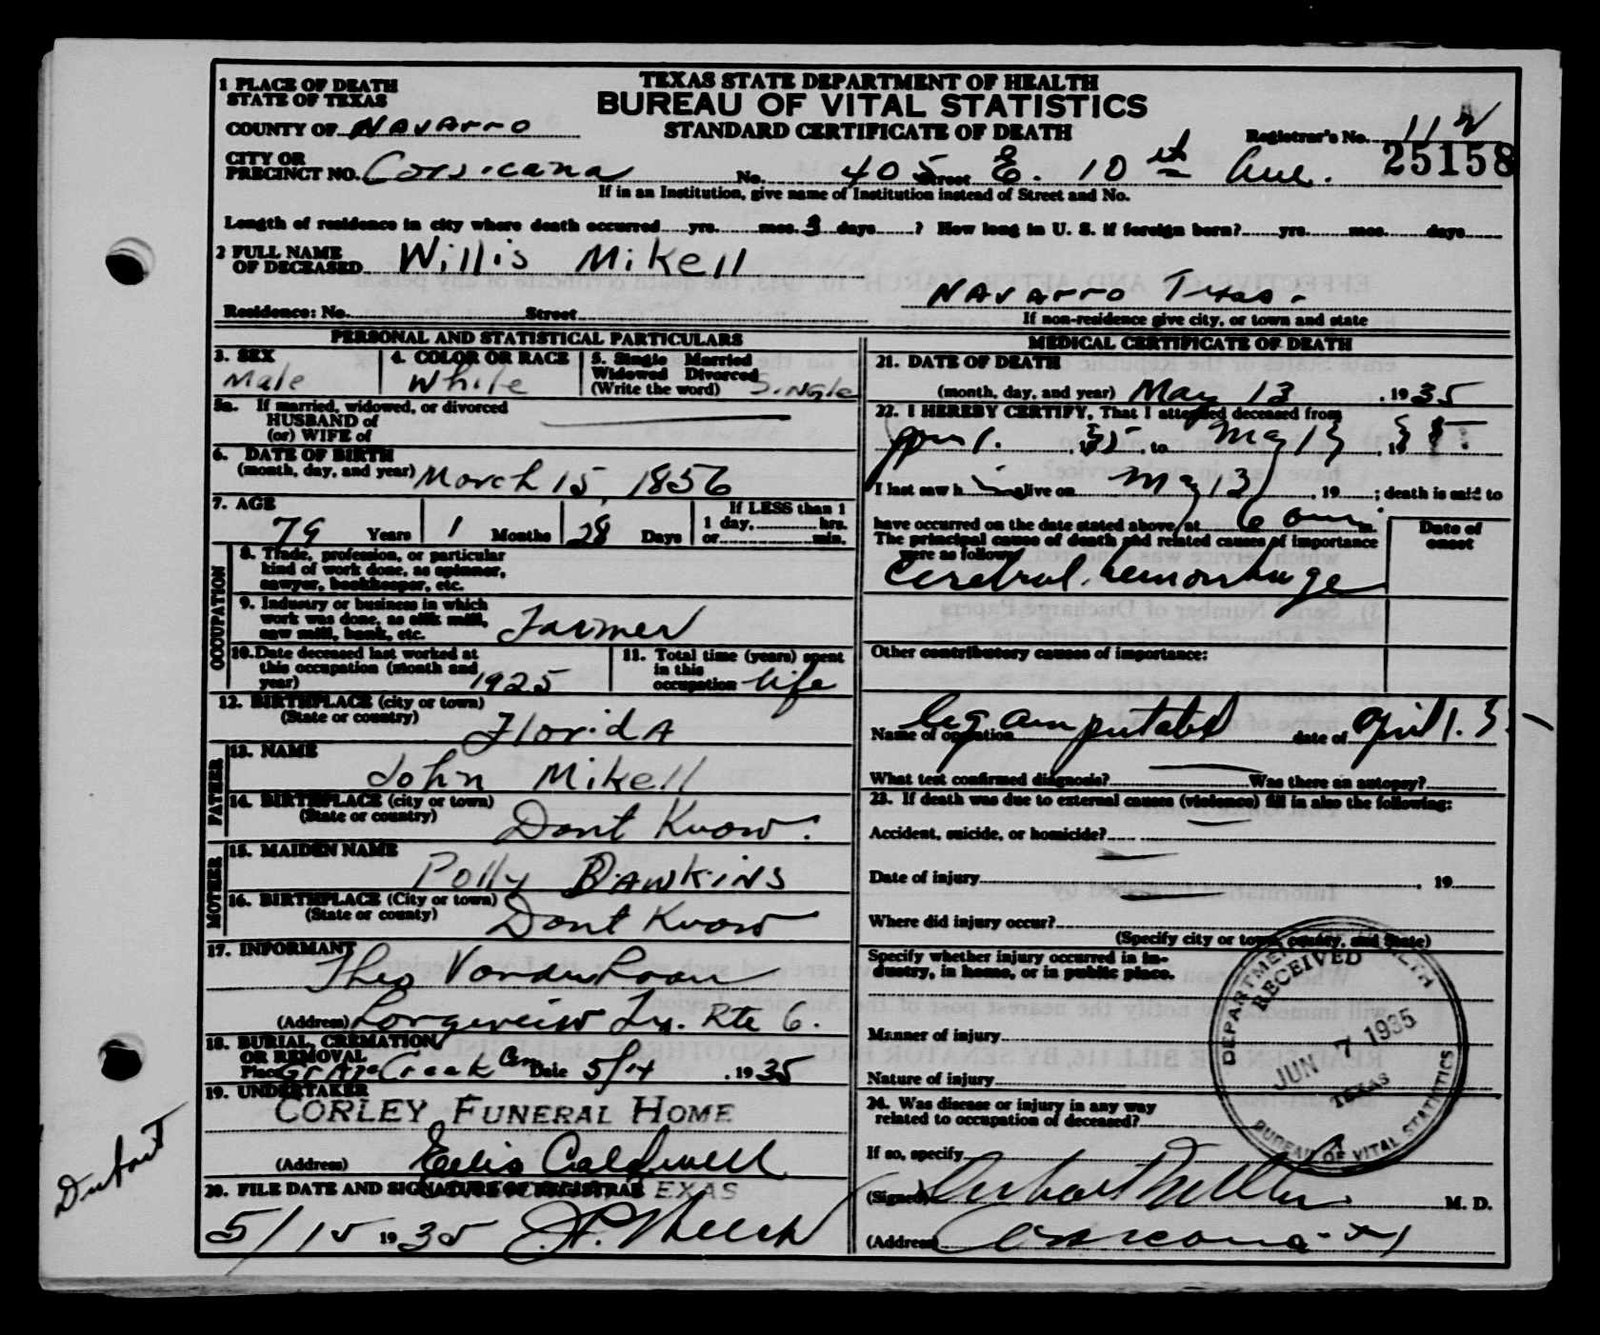 TEXAS STATE DEPARTMENT OF HEALTH
BUREAU OF VITAL STATISTICS
STANDARD CERTIFICATE OF DEATH
1 PLACE OF DEATH
STATE OF TEXAS
COUNTY OF Navarro
Registrar's No. 112
25158
CITY OR
PRECINCT NO. Corsicana No. 405 Street E. 10th Ave.
If in an Institution, give name of Institution instead of Street and No.
Length of residence in city where death occurred yrs. mos. 3 days ? How long in U. S. if foreign born? yrs. mos. days
2 FULL NAME
OF DECEASED Willis Mikell
Navarro Texas
Residence: No. Street
If non-residence give city, or town and state
PERSONAL AND STATISTICAL PARTICULARS
3. SEX
Male
4. COLOR OR RACE
White
5. Single Married
Widowed Divorced
(Write the word) Single
5a. If married, widowed, or divorced
HUSBAND of
(or) WIFE of
6. DATE OF BIRTH
(month, day, and year) March 15, 1856
7. AGE
79 Years 1 Months 28 Days
If LESS than 1
1 day, hrs.
or min.
OCCUPATION
8. Trade, profession, or particular
kind of work done, as spinner,
sawyer, bookkeeper, etc.
9. Industry or business in which
work was done, as silk mill,
saw mill, bank, etc. Farmer
10. Date deceased last worked at
this occupation (month and
year) 1925
11. Total time (years) spent
in this
occupation life
12. BIRTHPLACE (city or town)
(State or country) Florida
FATHER
13. NAME
John Mikell
14. BIRTHPLACE (city or town)
(State or country) Dont Know.
MOTHER
15. MAIDEN NAME
Polly Dawkins
16. BIRTHPLACE (City or town)
(State or county) Dont Know
17. INFORMANT
Theo
(Address) Rte 6.
18. BURIAL, CREMATION
OR REMOVAL
Place Grape Creek Cem Date 5/14, 1935
19. UNDERTAKER
CORLEY FUNERAL HOME
(Address) Ellis Caldwell
20. FILE DATE AND SIGNATURE OF REGISTRAR
TEXAS
5/15 1935
MEDICAL CERTIFICATE OF DEATH
21. DATE OF DEATH
(month, day, and year) May 13, 1935
22. I HEREBY CERTIFY, That I attended deceased from
35, to May 13, 1935
I last saw him alive on May 13, 19 ; death is said to
have occurred on the date stated above, at 6 am m.
The principal cause of death and related causes of importance
were as follows:
Date of
onset
Cerebral hemorrhage
Other contributory causes of importance:
Leg amputated
Name of operation date of April 1. 35
What test confirmed diagnosis? Was there an autopsy?
23. If death was due to external causes (violence) fill in also the following:
Accident, suicide, or homicide?
Date of injury , 19
Where did injury occur?
(Specify city or town, county, and State)
Specify whether injury occurred in in-
dustry, in home, or in public place.
Manner of injury
Nature of injury
24. Was disease or injury in any way
related to occupation of deceased?
If so, specify
(Signed) M. D.
(Address) Corsicana
DEPARTMENT OF HEALTH
RECEIVED
JUN 7 1935
TEXAS
BUREAU OF VITAL STATISTICS